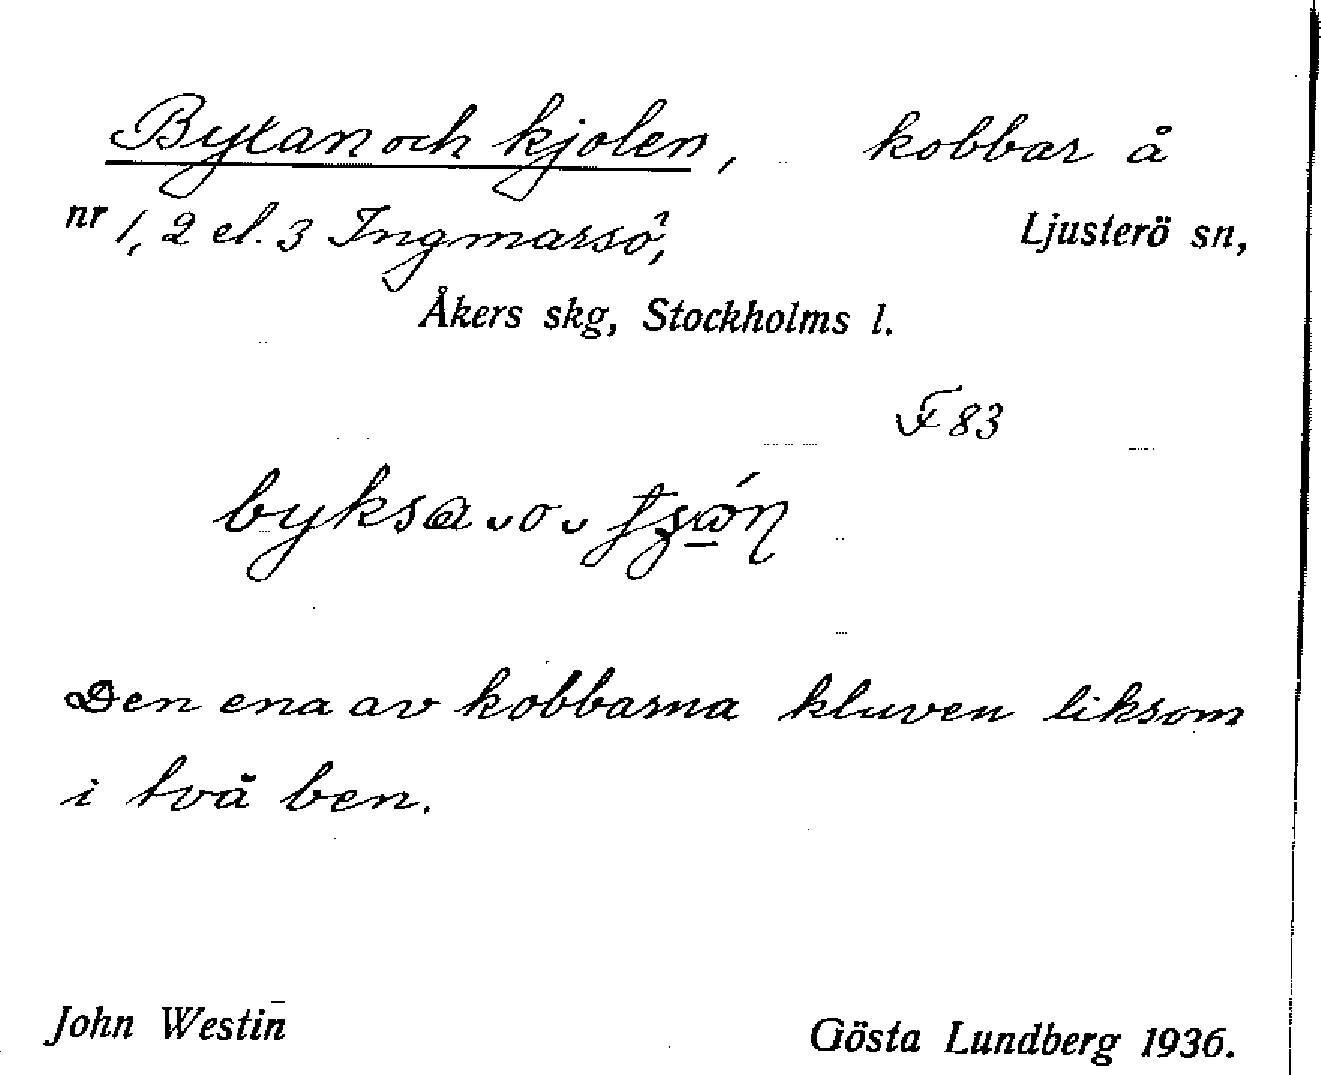 Byxan och kjolen, kobbar å
nr 1, 2 el. 3 Ingmarsö, Ljusterö sn,
Åkers skg, Stockholms l.
F 83
byksa o
Den ena av kobbarna kluven liksom
i två ben.
John Westin Gösta Lundberg 1936.